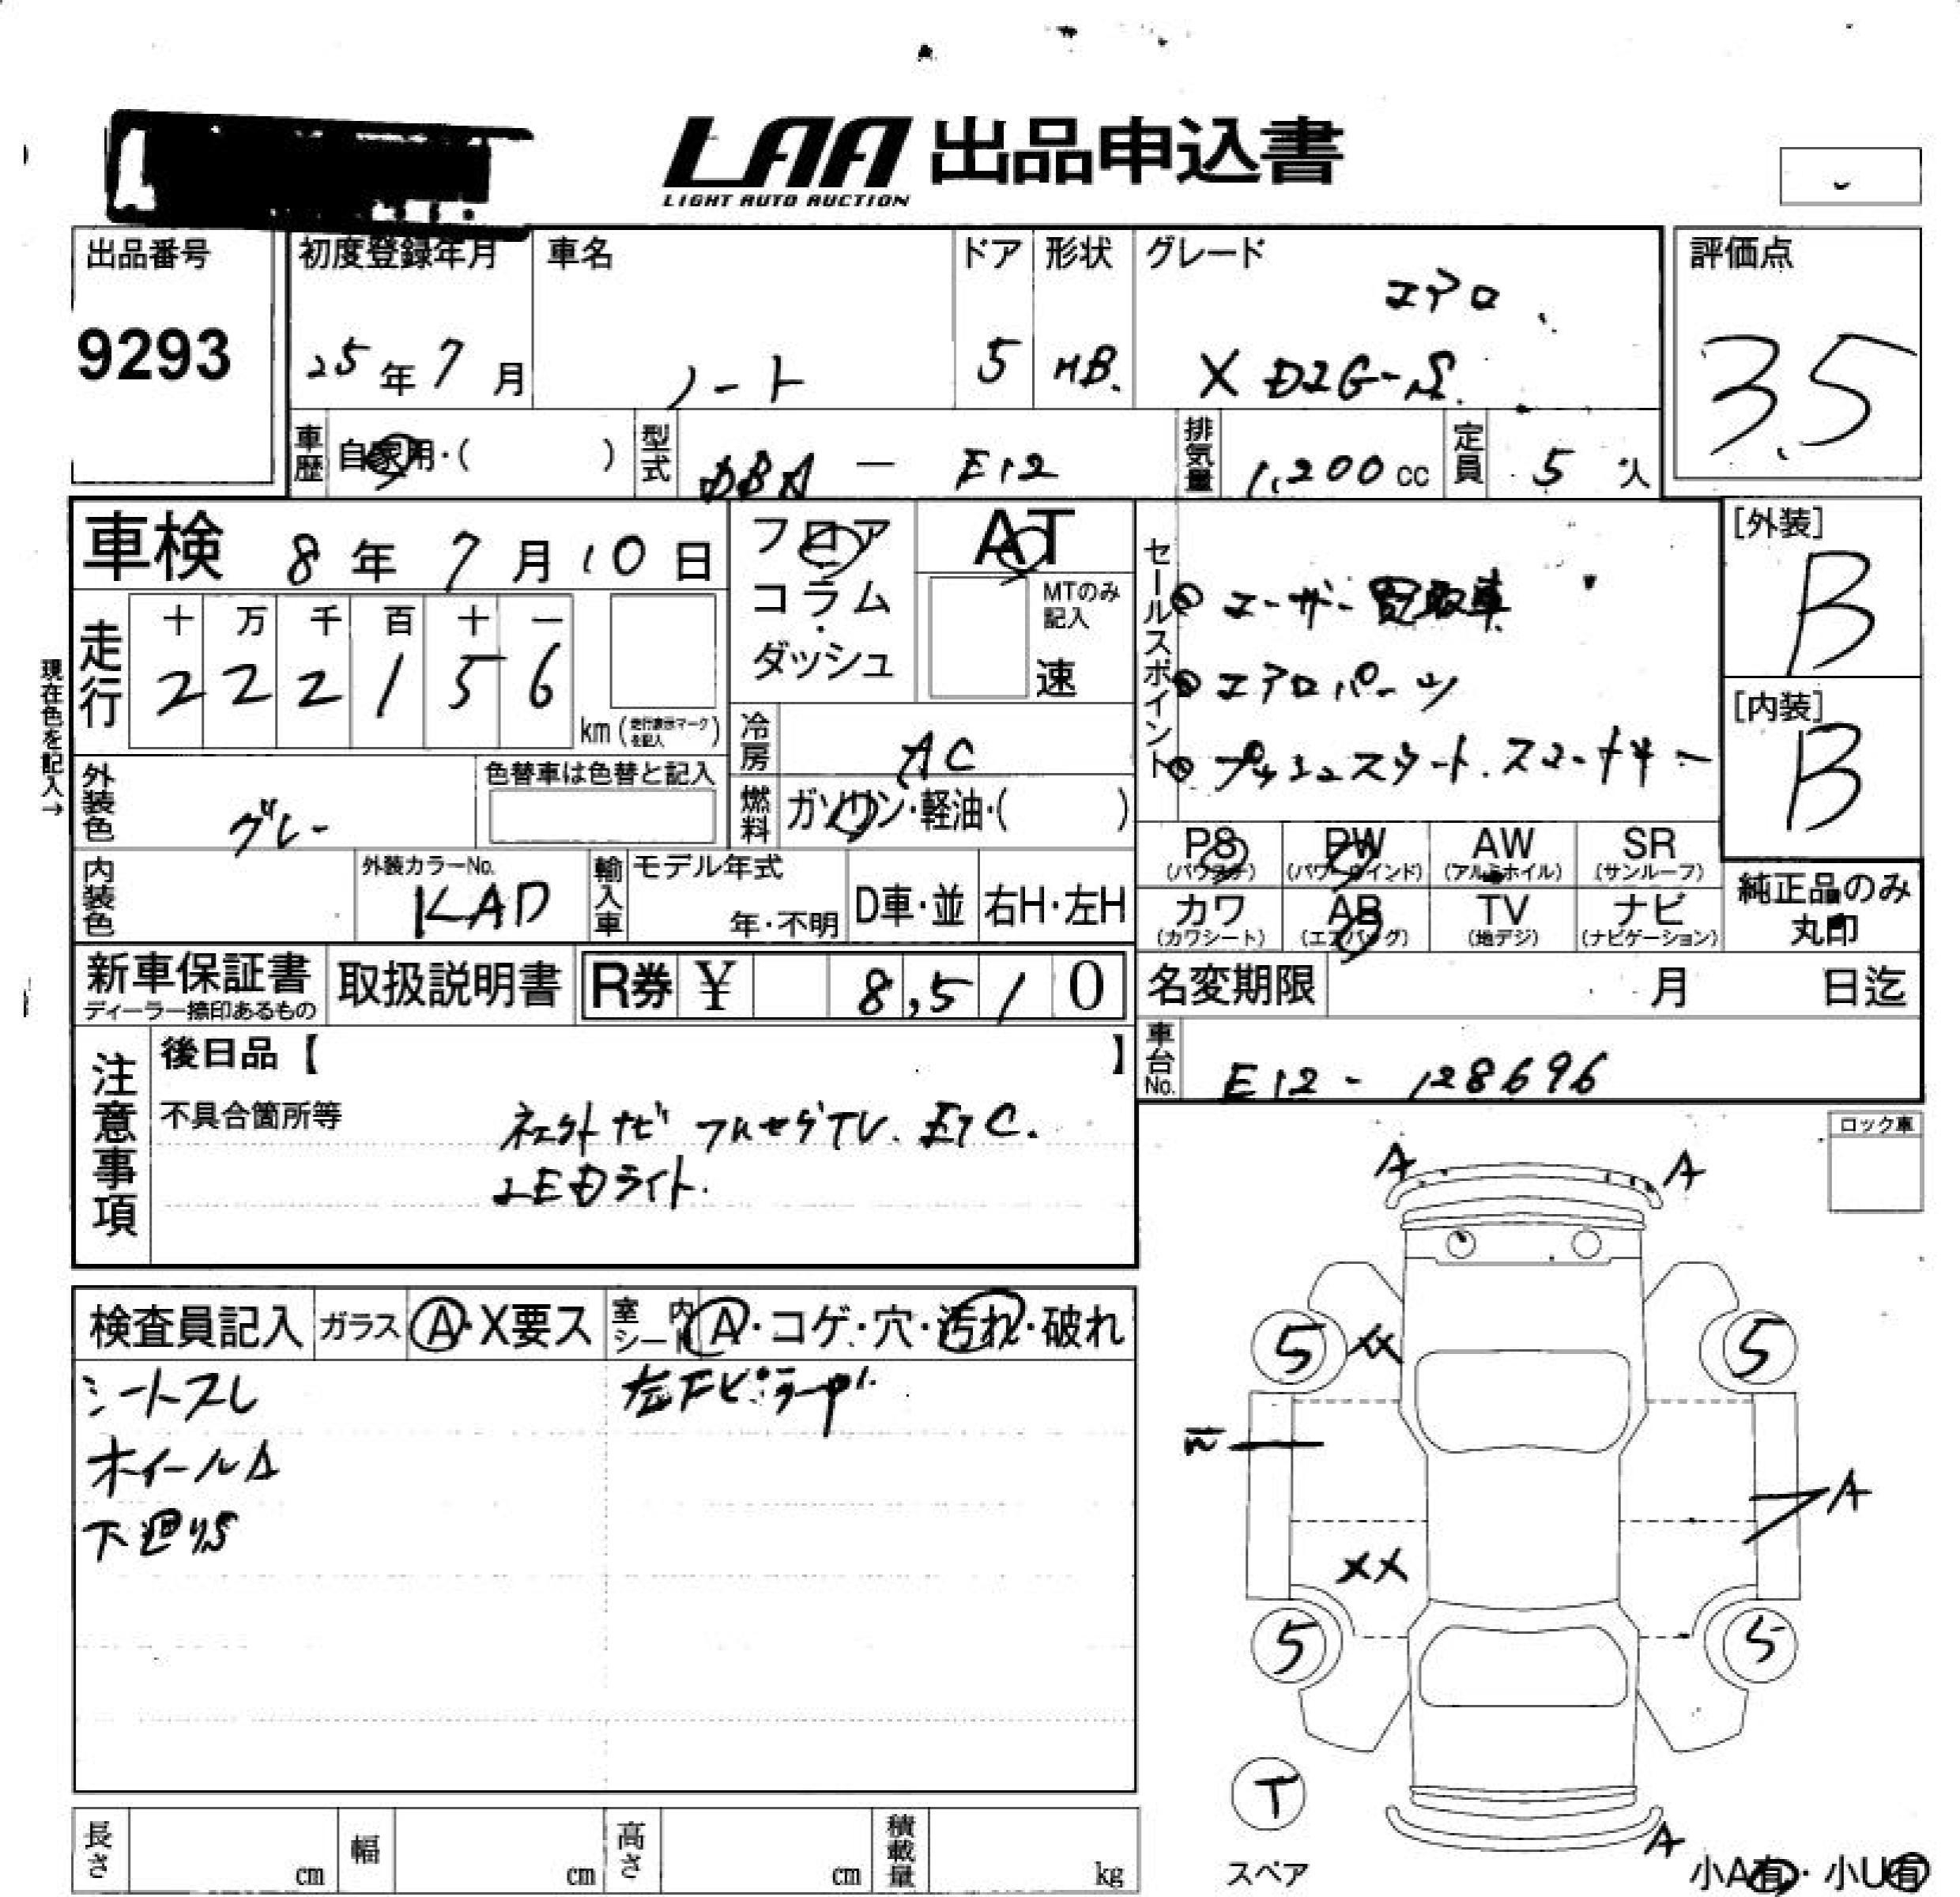 LAA 出品申込書
LIGHT AUTO AUCTION
出品番号 初度登録年月 車名 ドア 形状 グレード 評価点
エアロ
9293 25年7月 ノート 5 HB. X DIG-S. 3.5
車歴 自家用・( ) 型式 DBA — E12 排気量 1,200cc 定員 5人
車検 8年7月10日 フロア・コラム・ダッシュ AT MTのみ記入 速
セールスポイント
ユーザー買取車
エアロパーツ
プッシュスタート.スマートキー
[外装] B
[内装] B
現在色を記入→
走行 十 万 千 百 十 一
2 2 2 1 5 6 km (走行表示マークを記入)
冷房 AC
外装色 グレー 色替車は色替と記入
燃料 ガソリン・軽油・( )
PS (パワステ) PW (パワーウインド) AW (アルミホイル) SR (サンルーフ)
カワ (カワシート) AB (エアバッグ) TV (地デジ) ナビ (ナビゲーション)
純正品のみ丸印
内装色 外装カラーNo. KAD 輸入車 モデル年式 年・不明 D車・並 右H・左H
新車保証書 ディーラー捺印あるもの 取扱説明書 R券 ¥ 8,510
名変期限 月 日迄
車台No. E12 - 128696
注意事項 後日品【 】
不具合箇所等 社外ナビ フルセグTV. ETC.
LEDライト.
ロック車
A A
検査員記入 ガラス A・X要ス 室内シート A・コゲ・穴・汚れ・破れ
シートスレ 左FピラーP
ホイールA
下廻りS
5 XX 5
A
XX
5 5
T
スペア
A
小A有・小U有
長さ cm 幅 cm 高さ cm 積載量 kg